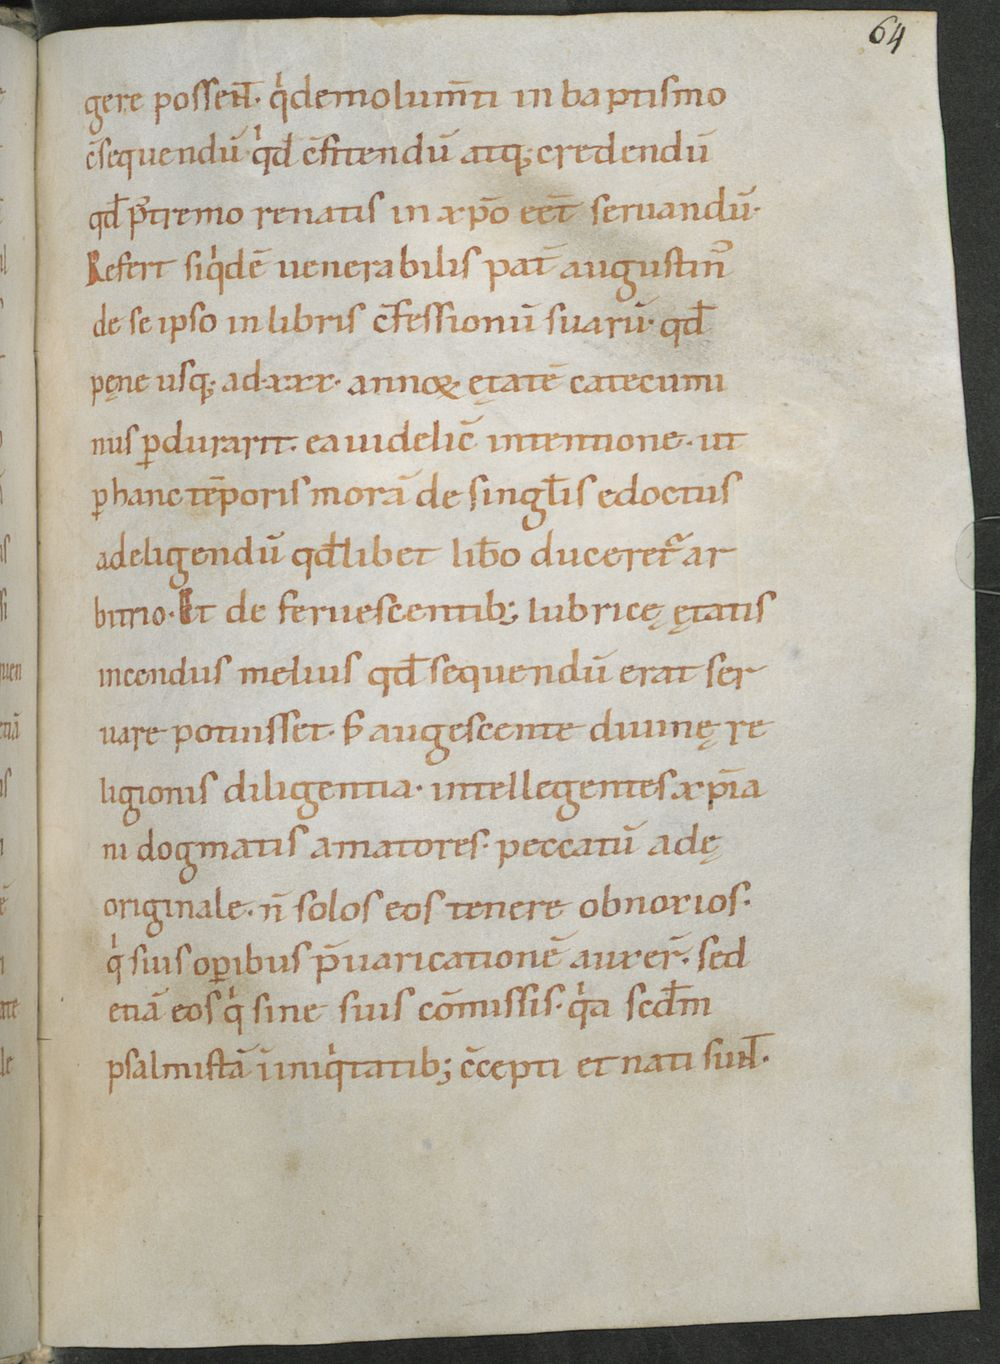 64
gere possent̄· qͥdemolum̄ti in baptismo
c̄sequendū qͥd c̄fitendū atq; credendū
qd̄ p̄tremo renatis in xp̄o eēt seruandū·
Refert siqͥdē uenerabilis pat̄ augustinꝰ
de se ipso in libris c̄fessionū suarū· qd̄
pęne usq; ad·xxx· annoꝝ ętatē catecumi
nus ꝑdurarit· ea uidelic̄ intentione· ut
ꝑ hanc tēporis morā de singl̄is edoctus
adeligendū qd̄libet lib̄o duceret᷑ ar
bitrio· Et de feruescentib; lubricę ętatis
incendiis melius qd̄ sequendū erat ser
uare potuisset· S̄ augescente diuinę re
ligionis diligentia· intellegentes xp̄ia
ni dogmatis amatores· peccatū adę
originale· n̄ solos eos tenere obnoxios·
qͥ suis oꝑibus p̄uaricationē auxer̄· sed
etiā eos qͥ sine suis cōmissis· qͥa scd̄m
psalmistā ī iniqͥtatib; c̄cepti et nati sunt̄·